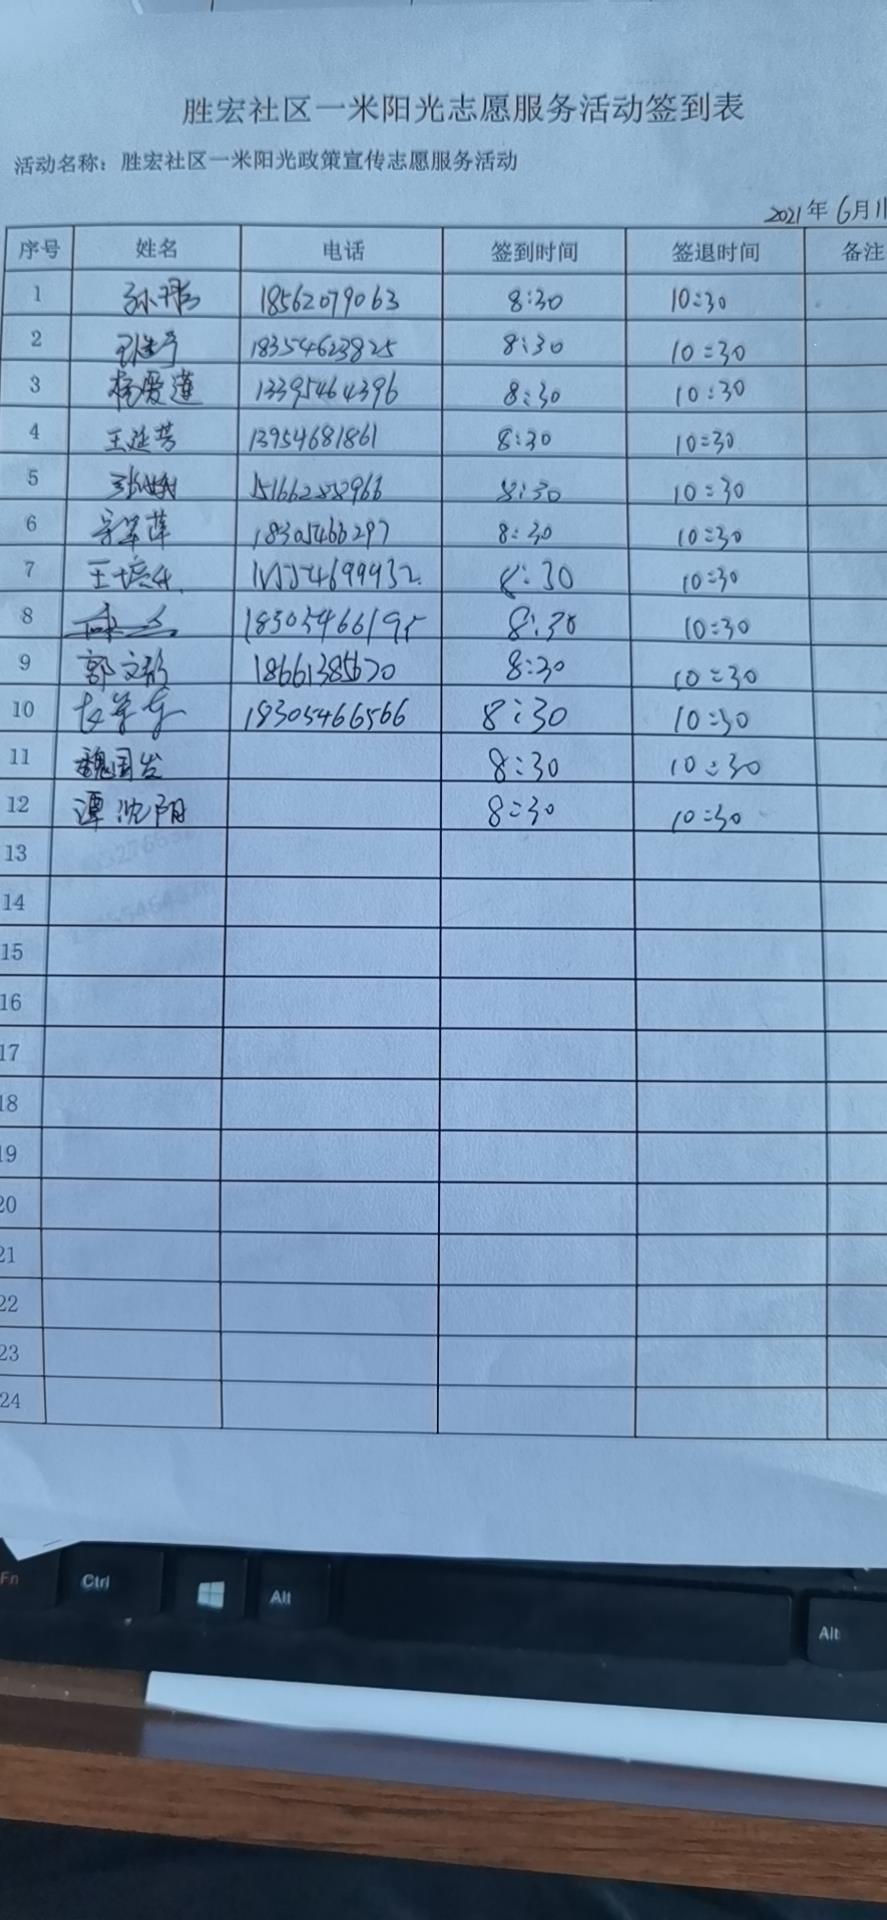 胜宏社区一米阳光志愿服务活动签到表
活动名称：胜宏社区一米阳光政策宣传志愿服务活动
2021年6月11
序号 姓名 电话 签到时间 签退时间 备注
1 18562079063 8:30 10:30
2 18354623825 8:30 10:30
3 杨爱莲 13395464396 8:30 10:30
4 王延芳 13954681861 8:30 10:30
5 8:30 10:30
6 18305466297 8:30 10:30
7 王培 8:30 10:30
8 18305466195 8:30 10:30
9 郭文 18661385620 8:30 10:30
10 18305466566 8:30 10:30
11 魏国发 8:30 10:30
12 谭沈阳 8:30 10:30
13
14
15
16
17
18
19
20
21
22
23
24
Fn Ctrl Alt Alt